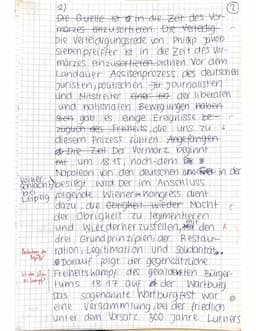 2
2)
Die Quelle ist in die Zeit des Vor-
märzes einzusortieren. Die Verteidig
Die Verteidigungsrede von Philip Jakob
Siebenpfeiffer ist in die Zeit des Vor-
märzes einzuordnen. Vor dem
Landauer Assisenprozess des deutschen
Juristen, politischen Journalisten
und Mitstreiter der liberalen
und nationalen Bewegungen haben
gab es einige Ereignisse be-
züglich des Freiheits, die uns zu
diesem Prozess führen. Angefangen
Die Zeit Der Vormärz beginnt
mit um 1815, nach dem
Napoleon von den deutschen in der
Völker-
schlacht
bei
Leipzig
besiegt wird. Der im Anschluss
folgende Wiener Kongress dient
dazu, die Obrigkeit wieder Macht
der Obrigkeit zu legimentieren
und wiederherzustellen, mit den
drei Grundprinzipien, der Restau-
ration, Legitimation und Solidarität.
Darauf folgt der gegensätzliche
Freiheitskampf des gebildeten Bürger-
tums 1817 auf der Wartburg.
Das sogenannte Wartburgfest war
eine Veranstaltung, bei der friedlich
unter dem Vorsatz 300 Jahre Luthers